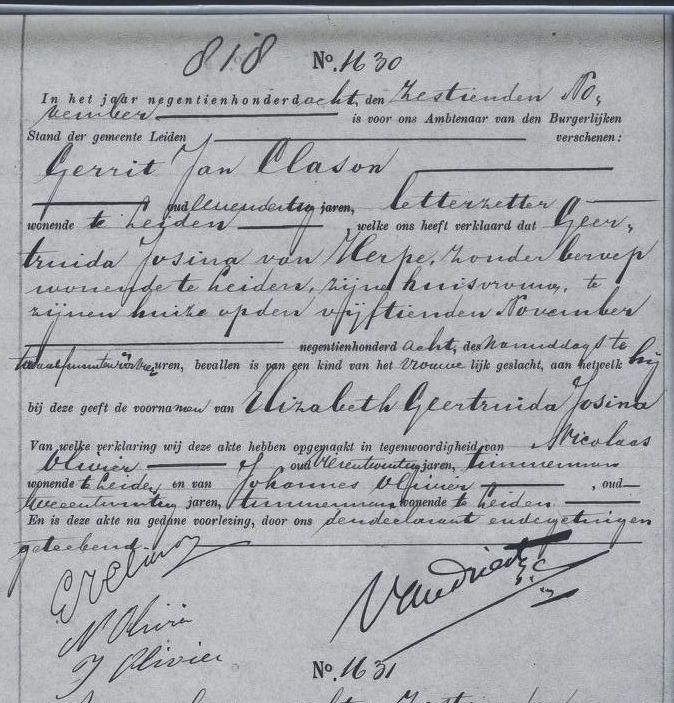 818 No. 1630
In het jaar negentienhonderd acht, den zestienden No-
vember is voor ons Ambtenaar van den Burgerlijken
Stand der gemeente Leiden verschenen:
Gerrit Jan Clason
oud jaren, letterzetter
wonende te Leiden, welke ons heeft verklaard dat Geer-
truida Josina van Herpe, zonder beroep
wonende te Leiden, zijne huisvrouw, te
zijnen huize op den vijftienden November
negentienhonderd acht, des namiddags te
twaalf minuten vóór uren, bevallen is van een kind van het vrouwelijk geslacht, aan hetwelk hij
bij deze geeft de voornamen van Elizabeth Geertruida Josina
Van welke verklaring wij deze akte hebben opgemaakt in tegenwoordigheid van Nicolaas
Olivier oud jaren, timmerman
wonende te Leiden en van Johannes Olivier, oud
jaren, timmerman wonende te Leiden.
En is deze akte na gedane voorlezing, door ons den declarant en de getuigen
geteekend.
N Olivier
J Olivier
No. 1631